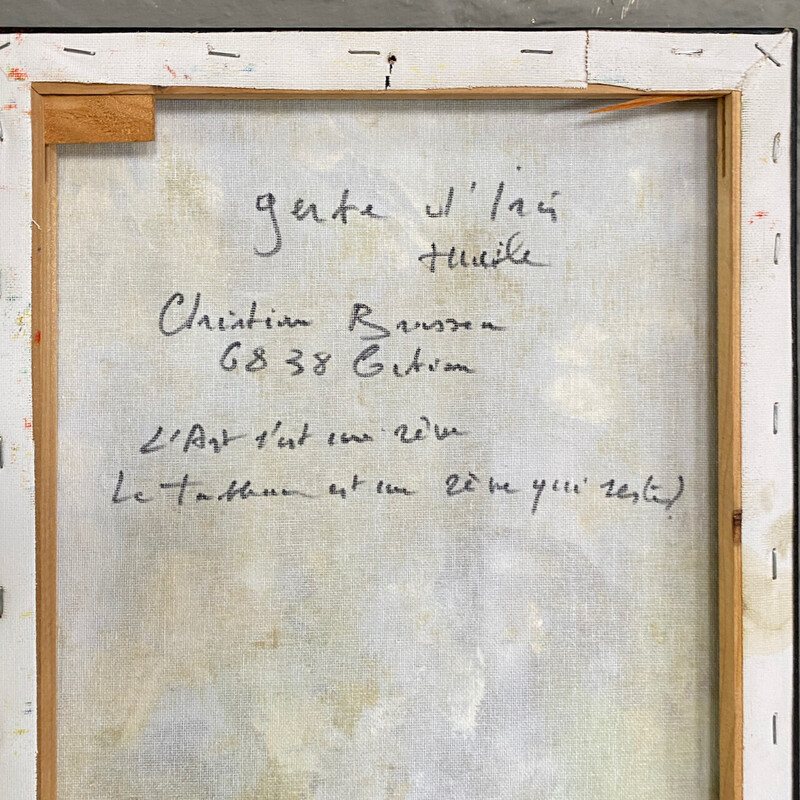 gerbe d'Iris
Huile
Christian Brusseu
6838 Cition
L'Art c'est un rêve
Le Tableau est un rêve qui reste)